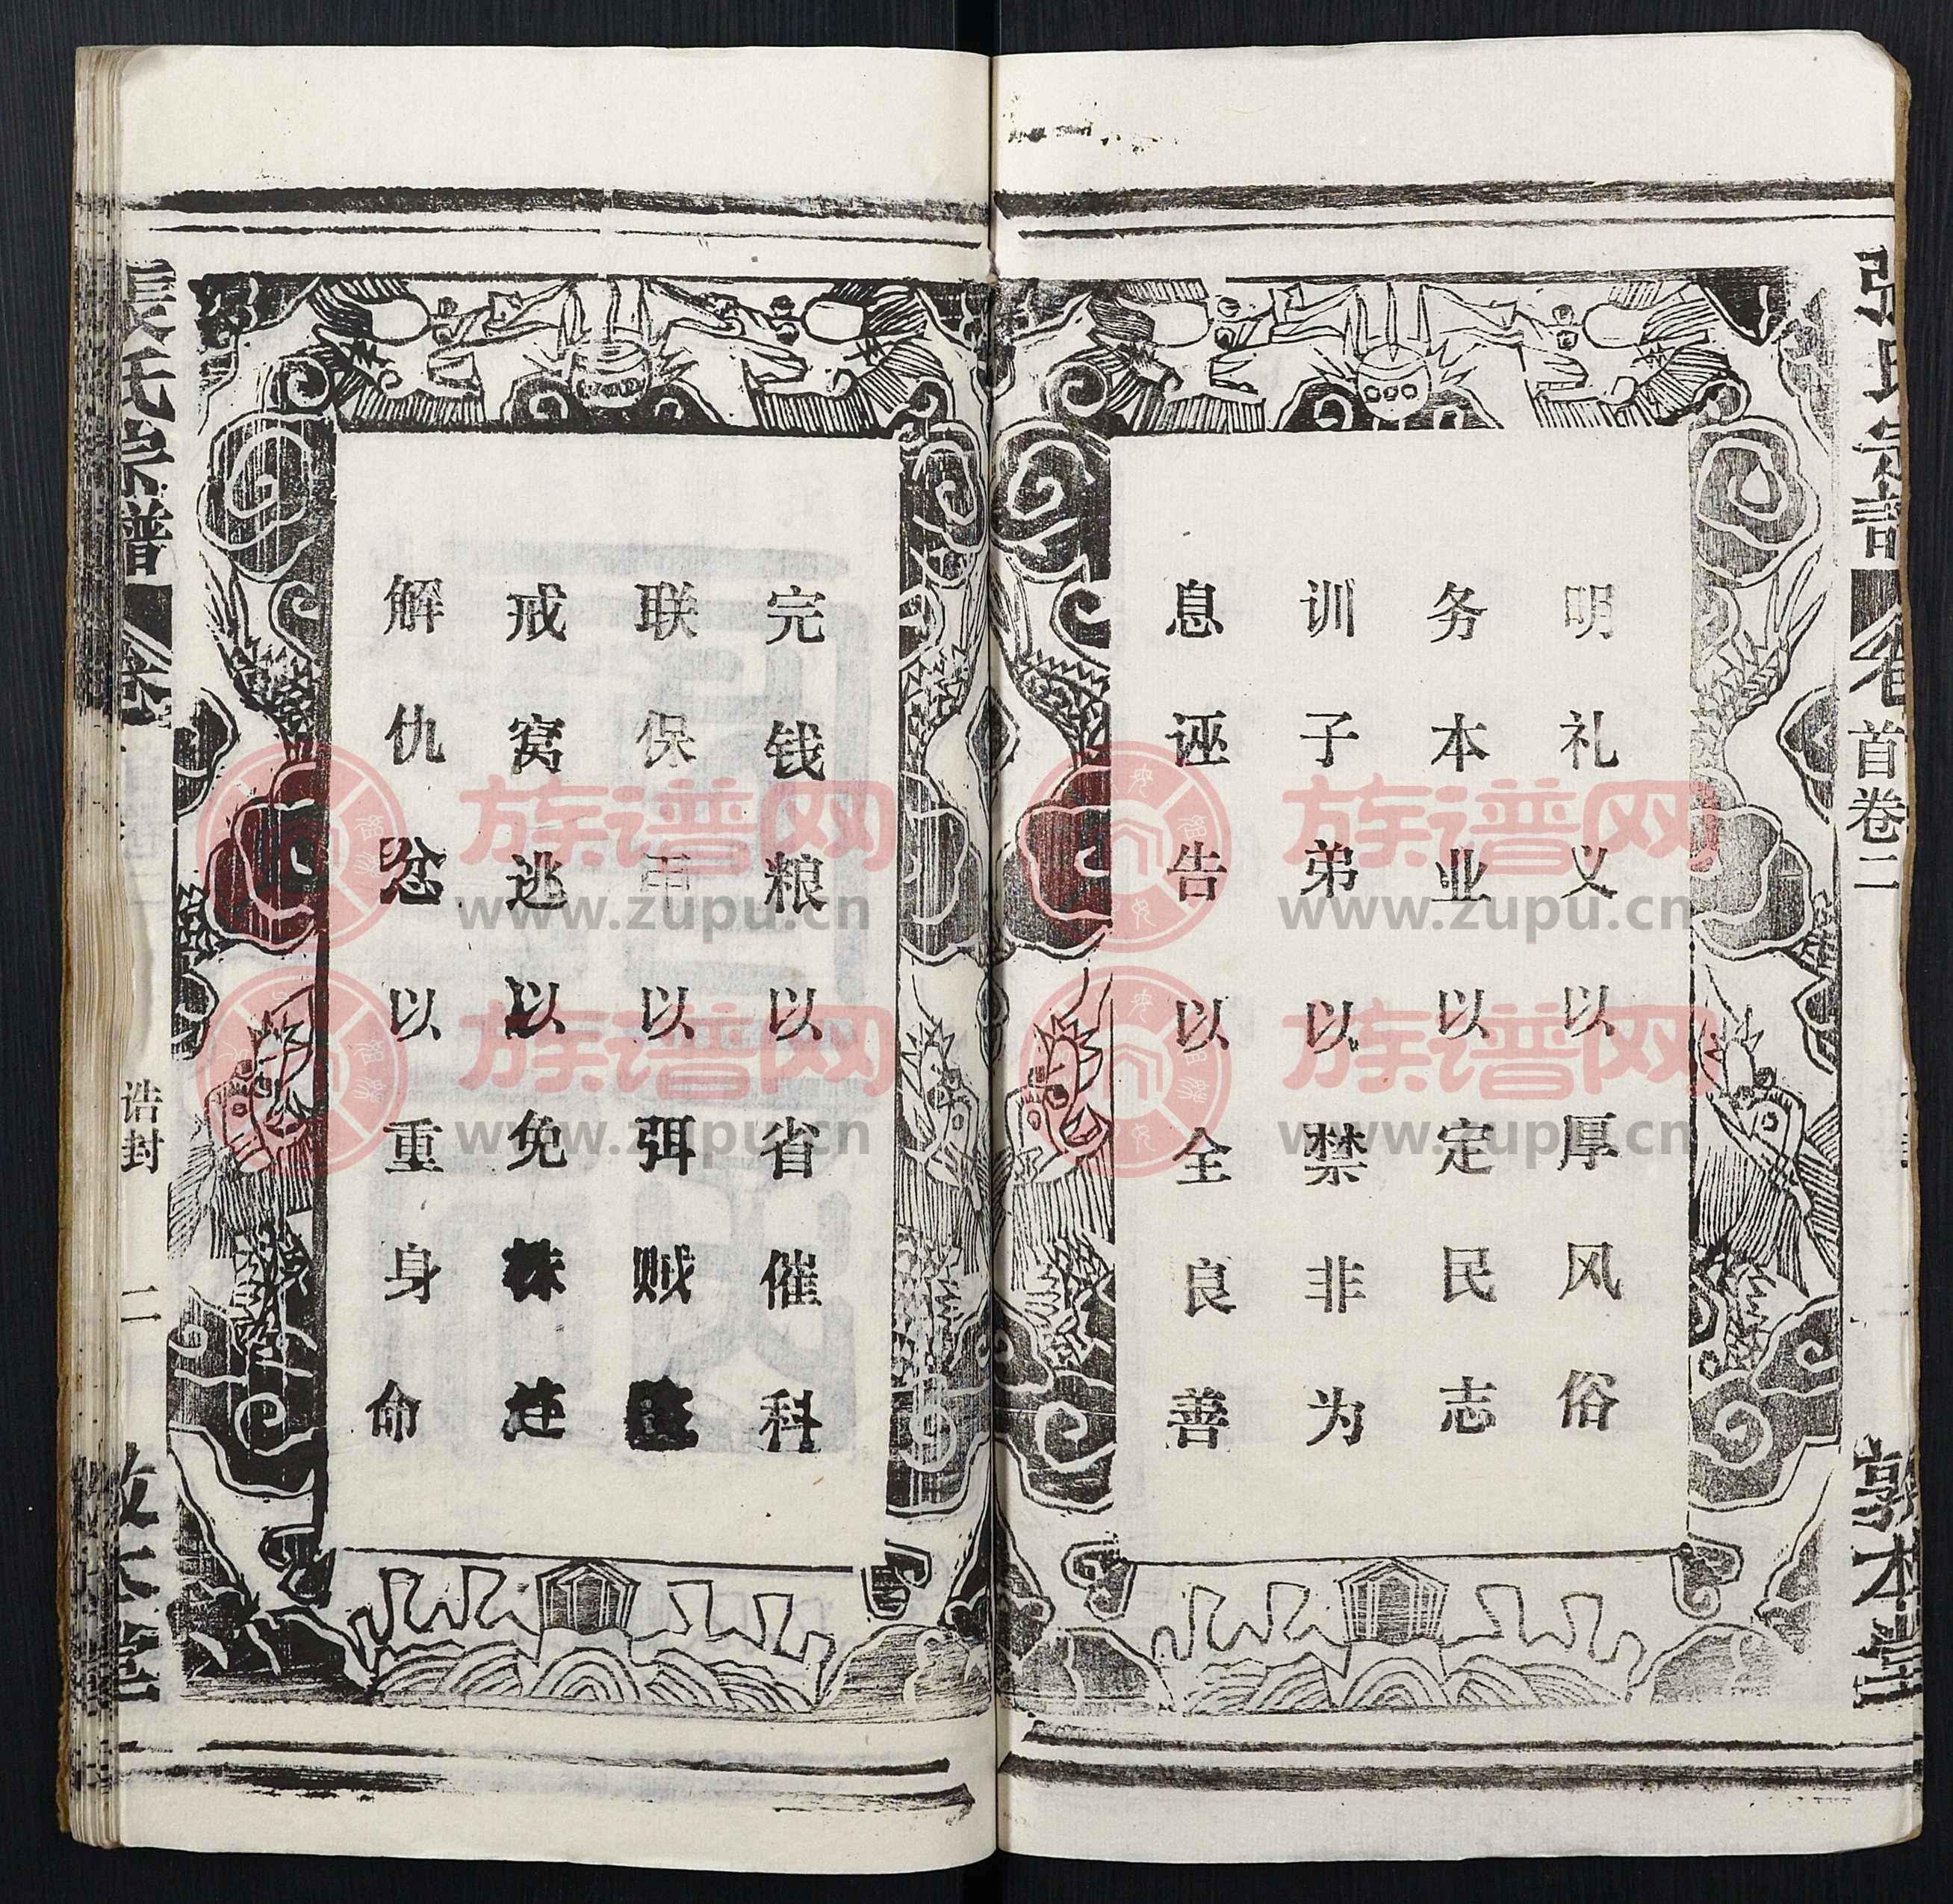 张氏宗谱
卷
首卷二
敦本堂
明礼义以厚风俗
务本业以定民志
训子弟以禁非为
息诬告以全良善
完钱粮以省催科
联保甲以弭贼
戒窝逃以免株连
解仇忿以重身命
張氏宗譜
卷
诰封
二
敦本堂
族谱网
www.zupu.cn
族谱网
www.zupu.cn
族谱网
www.zupu.cn
族谱网
www.zupu.cn